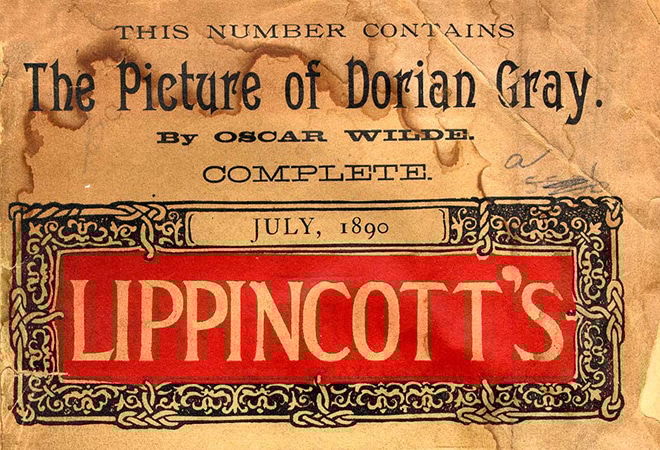 THIS NUMBER CONTAINS
The Picture of Dorian Gray.
By OSCAR WILDE.
COMPLETE.
JULY, 1890
LIPPINCOTT'S